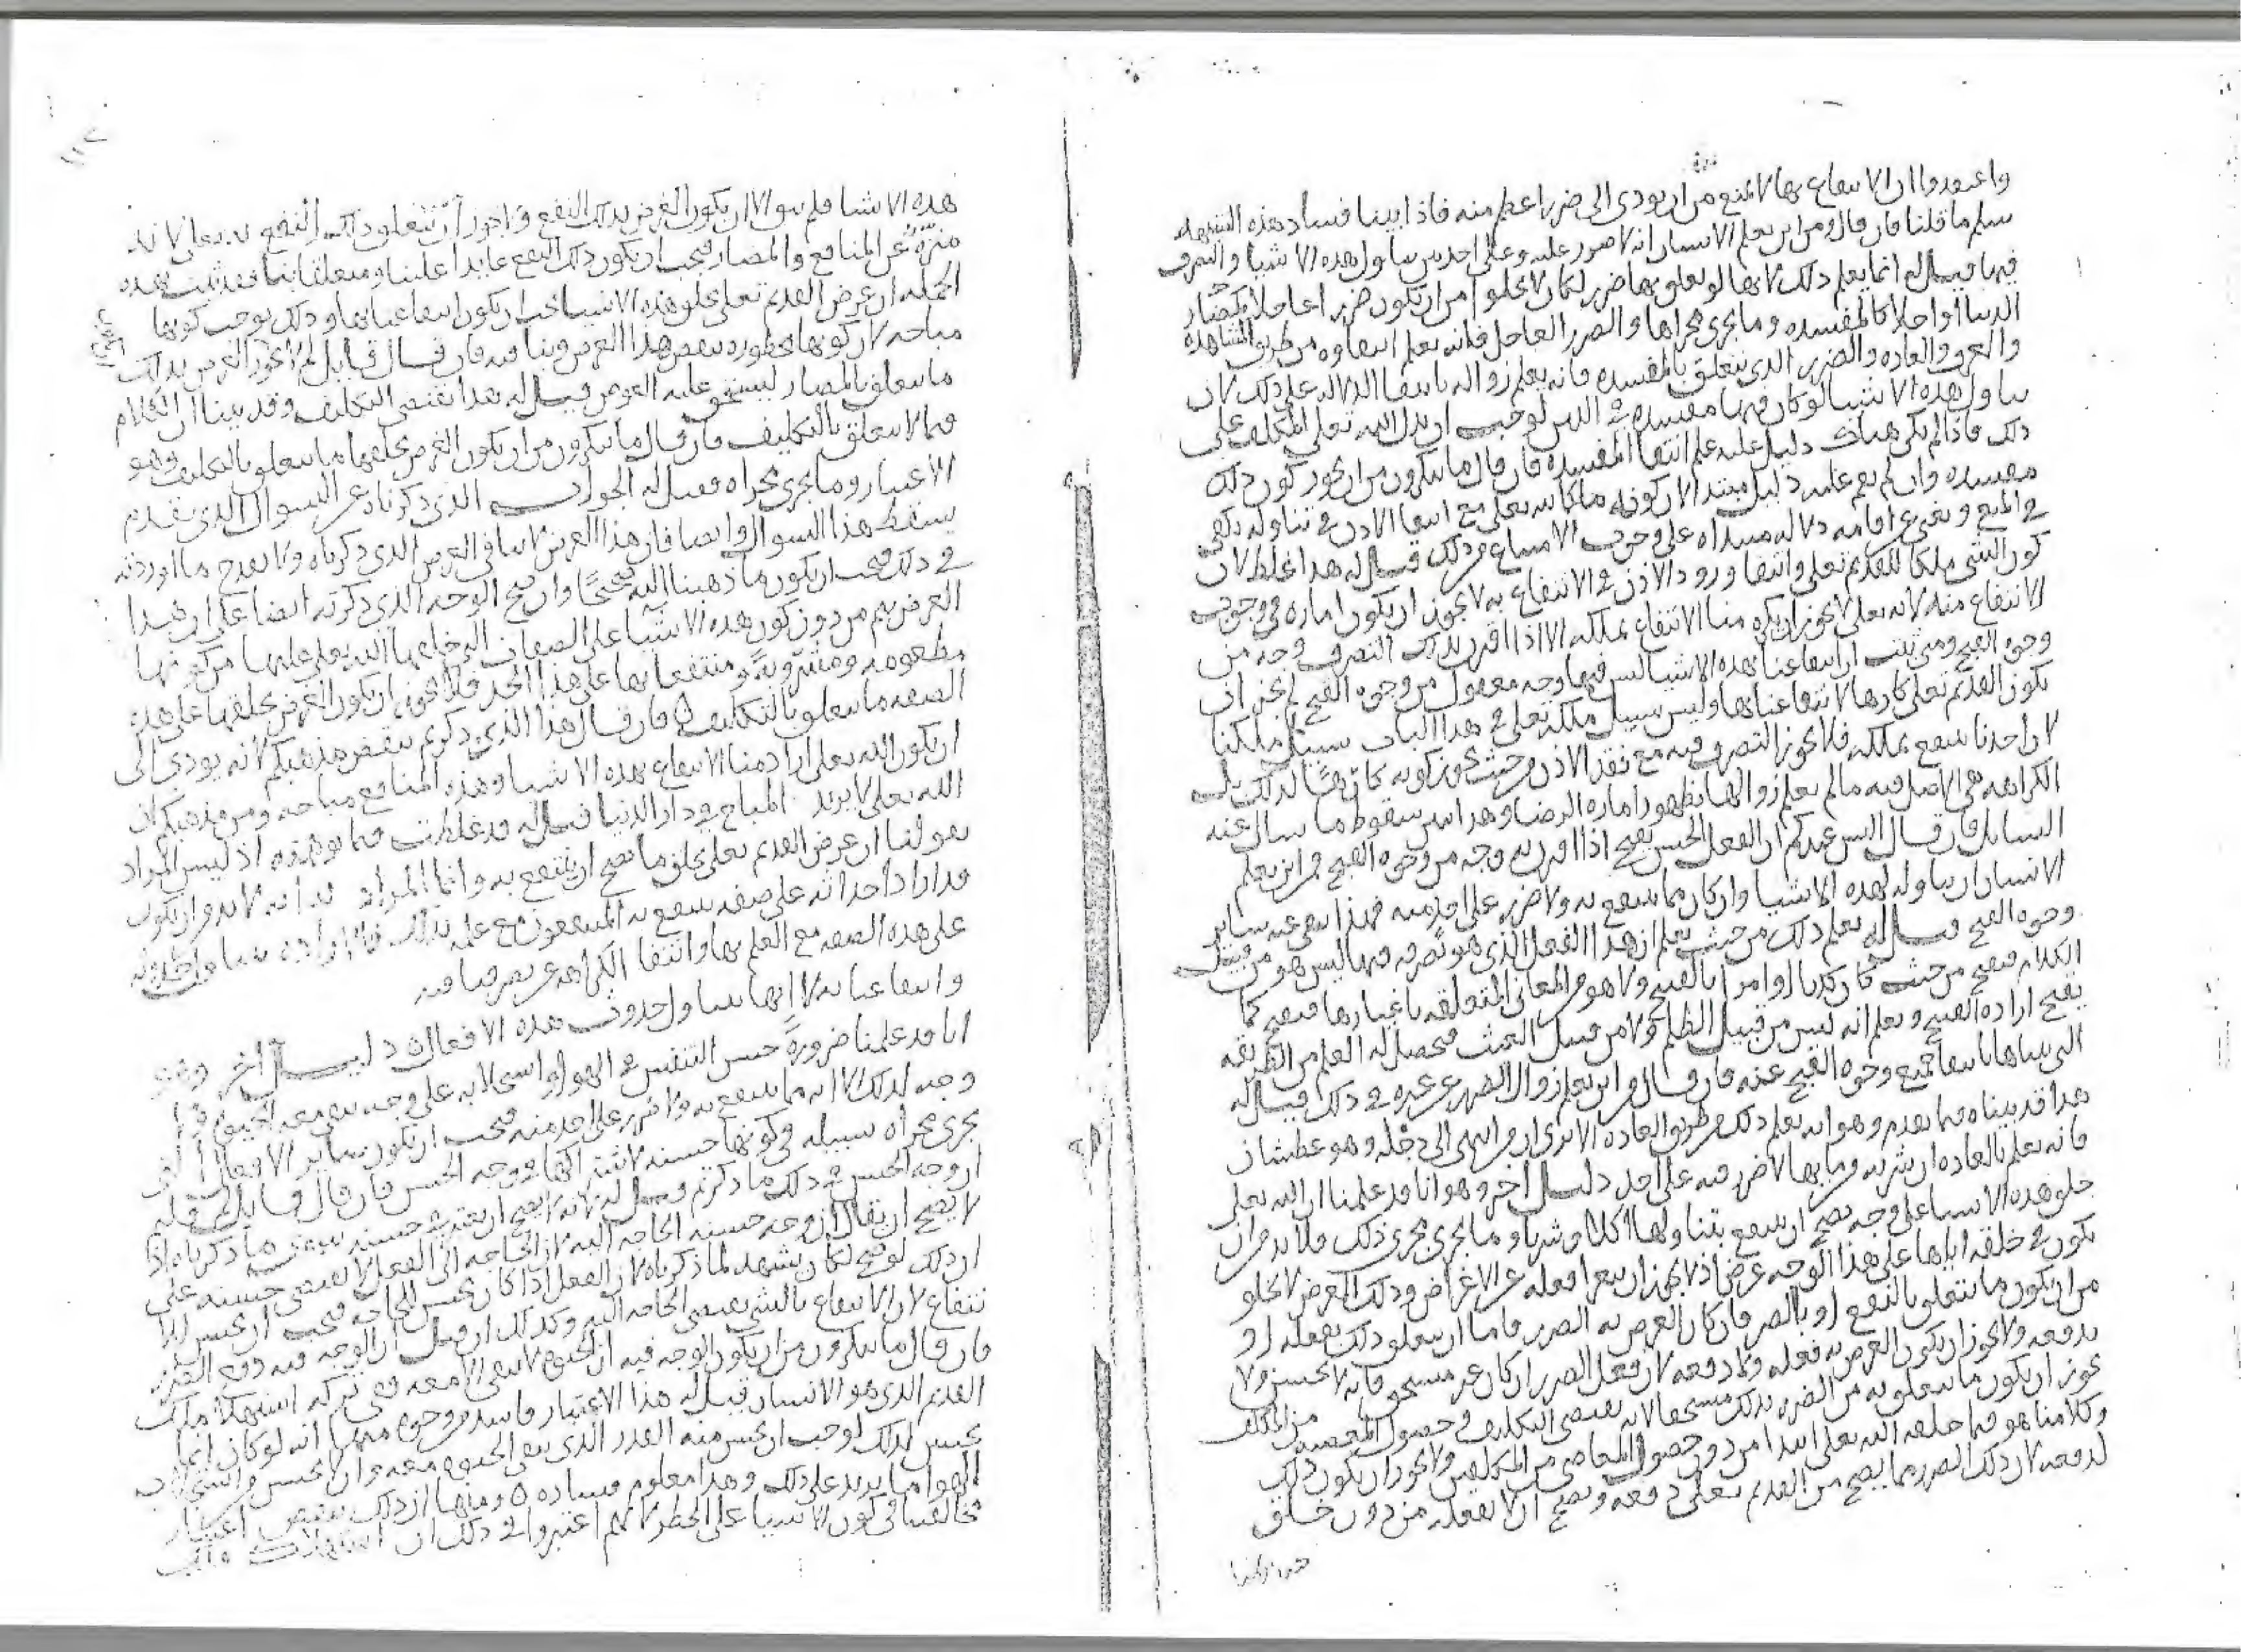 واعتقدوا ان الانتفاع بها لا يمنع من ان يودى الى ضرر اعظم منه فاذا بينا فساد هذه الشبهه
سلم ما قلنا فان قال ومن اين يعلم الانسان انه لا ضرر عليه وعلى احد من تناول هذه الاشيا والتصرف
فيها قيل له انما يعلم ذلك لانها لو تعلق بها ضرر لكان لا يخلوا من ان يكون ضررا عاجلا كمضار
الدنيا او اجلا كالمفسده وما يجرى مجراها والضرر العاجل فانه يعلم انتفاوه من طريق المشاهده
والعرف والعاده والضرر الذى يتعلق بالمفسده فانه يعلم زواله بانتفا الدلاله على ذلك لان
تناول هذه الاشيا لو كان فيها مفسده فى الدين لوجب ان يدل الله تعلى المكلف على
ذلك فاذا لم يكن هناك دليل عليه علم انتفا المفسده فان قال ما تنكرون من ان يجوز كون ذلك
مفسده وان لم يقم عليه دليل مبتدا لان كونه ملكا لله تعلى مع انتفا الاذن فى تناوله يكفى
فى المنع ويغنى عن اقامه دلاله مبتداه على وجوب الامتناع من ذلك قيل له هذا غلط لان
كون الشى ملكا للقديم تعلى وانتفا ورود الاذن فى الانتفاع به لا يجوز ان يكون اماره فى وجوب
الانتفاع منه لانه تعلى لا يجوز ان يكره منا الانتفاع بملكه الا اذا اقترن بذلك التصرف وجه من
وجوه القبح ومتى ثبت ان انتفاعنا بهذه الاشيا ليس فيها وجه معقول من وجوه القبح لم يجز ان
يكون القديم تعلى كارها لانتفاعنا بها وليس سبيل ملكه تعلى فى هذا الباب سبيل ملكنا
لان احدنا ينتفع بملكه فلا يجوز التصرف فيه مع فقد الاذن من حيث يجوز كونه كارها لذلك بل
الكراهه هى الاصل فيه ما لم يعلم زوالها بظهور اماره الرضا وهذا بين سقوط ما سال عنه
السايل فان قال اليس عندكم ان الفعل الحسن يقبح اذا اقترن به وجه من وجوه القبح فمن اين يعلم
الانسان ان تناوله لهذه الاشيا وان كان مما ينتفع به ولا ضرر على احد منه فهذا ينتفى عنه ساير
وجوه القبح قيل له يعلم ذلك من حيث يعلم ان هذا الفعل الذى هو تصرفه فيها ليس هو من قبيل
الكلام فيقبح من حيث كان كذبا او امرا بالقبيح ولا هو من المعانى المتعلقه باغيارها فيقبح كما
يقبح اراده القبيح ويعلم انه ليس من قبيل الظلم ولا من قبيل العبث فيحصل له العلم من الطريقه
التى بيناها بانتفا جميع وجوه القبح عنه فان قال ومن اين يعلم زوال الضرر عن غيره فى ذلك قيل له
هذا قد بيناه فيما تقدم وهو انه يعلم ذلك من طريق العاده الا ترى ان من انتهى الى دجله وهو عطشان
فانه يعلم بالعاده ان شربه من مايها لا ضرر فيه على احد دليل اخر وهو انا قد علمنا ان الله تعلى
خلق هذه الاشيا على وجه يصح ان ينتفع بتناولها اكلا وشربا وما يجرى مجرى ذلك فلا بد من ان
يكون فى خلقه اياها على هذا الوجه غرض اذ لا يجوز ان يعرا فعله عن الاغراض وذلك الغرض لا يخلو
من ان يكون ما يتعلق بالنفع او بالضر فان كان الغرض به الضرر فاما ان يتعلق ذلك بفعله او
بدفعه ولا يجوز ان يكون الغرض به فعله ولا دفعه لان فعل الضرر ان كان غير مستحق فانه لا يحسن ولا
يجوز ان يكون ما يتعلق به من الضرر بذلك مستحقا لانه يقتضى التكليف وحصول المعصيه من المكلف
وكلامنا هو فيما خلقه الله تعلى ابتدا من دون حصول المعاصى من المكلفين ولا يجوز ان يكون ذلك
لدفعه لان ذلك الضرر مما يصح من القديم تعلى دفعه ويصح ان لا يفعله من دون خلق
١١٢
هذه الاشيا فلم يبق الا ان يكون الغرض بذلك النفع ولا يجوز ان يتعلق ذلك النفع به تعلى لانه
منزه عن المنافع والمضار فيجب ان يكون ذلك النفع عايدا علينا ومتعلقا بنا فقد ثبت بهذه
الجمله ان غرض القديم تعلى بخلق هذه الاشيا يجب ان يكون انتفاعنا بها وذلك يوجب كونها
مباحه لان كونها محظوره ينقض هذا الغرض وينافيه فان قال قايل لم لا يجوز الغرض بذلك
ما يتعلق بالمضار ليستحق عليه العوض قيل له هذا يقتضى التكليف وقد بينا ان الكلام
فيما لا يتعلق بالتكليف فان قال ما تنكرون من ان يكون الغرض بخلقها ما يتعلق بالتكليف وهو
الاعتبار وما يجرى مجراه قيل له الجواب الذى ذكرناه عن السوال الذى تقدم
يسقط هذا السوال وايضا فان هذا الغرض لا ينافى الغرض الذى ذكرناه ولا يقدح ما اوردته
فى ذلك فيجب ان يكون ما ذهبنا اليه صحيحا وان صح الوجه الذى ذكرته ايضا على ان هذا
الغرض يتم من دون كون هذه الاشيا على الصفات التى خلقها الله تعلى عليها من كونها
مطعومه ومشروبه ومنتفعا بها على هذا الحد فلا يجوز ان يكون الغرض بخلقها على هذه
الصفه ما يتعلق بالتكليف فان قال هذا الذى ذكرتم ينقض مذهبكم لانه يودى الى
ان يكون الله تعلى اراد منا الانتفاع بهذه الاشيا وهذه المنافع مباحه ومن مذهبكم ان
الله تعلى لا يريد المباح فى دار الدنيا قيل له قد غلطت فيما توهمته اذ ليس المراد
بقولنا ان غرض القديم تعلى بخلق ما يصح ان ينتفع به وانما المراد به انه لا بد من ان يكون
قد اراد احداثه على صفه ينتفع به المنتفعون مع علمه بذلك
على هذه الصفه مع العلم بها وانتفا الكراهه عن تصرفنا فيه
وانتفاعنا به لا انها تتناول حدوث هذه الافعال دليل اخر وهو
انا قد علمنا ضروره حسن التنفس فى الهوا واستجلابه على وجه يبقى معه الحيوه ولا
وجه لذلك الا انه مما ينتفع به ولا ضرر على احد منه فيجب ان يكون ساير الافعال التى
يجرى مجراه سبيله فى كونها حسنه لاشتراكها فى وجه الحسن فان قال قايل لم قلتم
ان وجه الحسن فى ذلك ما ذكرتم قيل له لانه لا يصح ان يعتبر فى حسنه سوى ما ذكرناه اذ
لا يصح ان يقال ان وجه حسنه الحاجه اليه لان الحاجه الى الفعل لا تقتضى حسنه على
ان ذلك لو صح لكان يشهد لما ذكرناه لان الفعل اذا كان يحسن للحاجه فيجب ان يحسن للا
نتفاع لان الانتفاع بالشى يقتضى الحاجه اليه وكذلك ان قيل ان الوجه فيه دفع الضرر
فان قال ما تنكرون من ان يكون الوجه فيه ان الحيوه لا تبقى الا معه ففى تركه استهلاك ملك
القديم الذى هو الانسان قيل له هذا الاعتبار فاسد من وجوه منها انه لو كان انما
يحسن لذلك لوجب ان يحسن منه القدر الذى تبقى الحيوه معه وان لا يحسن من استجلاب
الهوا ما يزيد على ذلك وهذا معلوم فساده ومنها ان ذلك ينقض اعتبار
مخالفينا فى كون الاشيا على الحظر لانهم اعتبروا فى ذلك ان